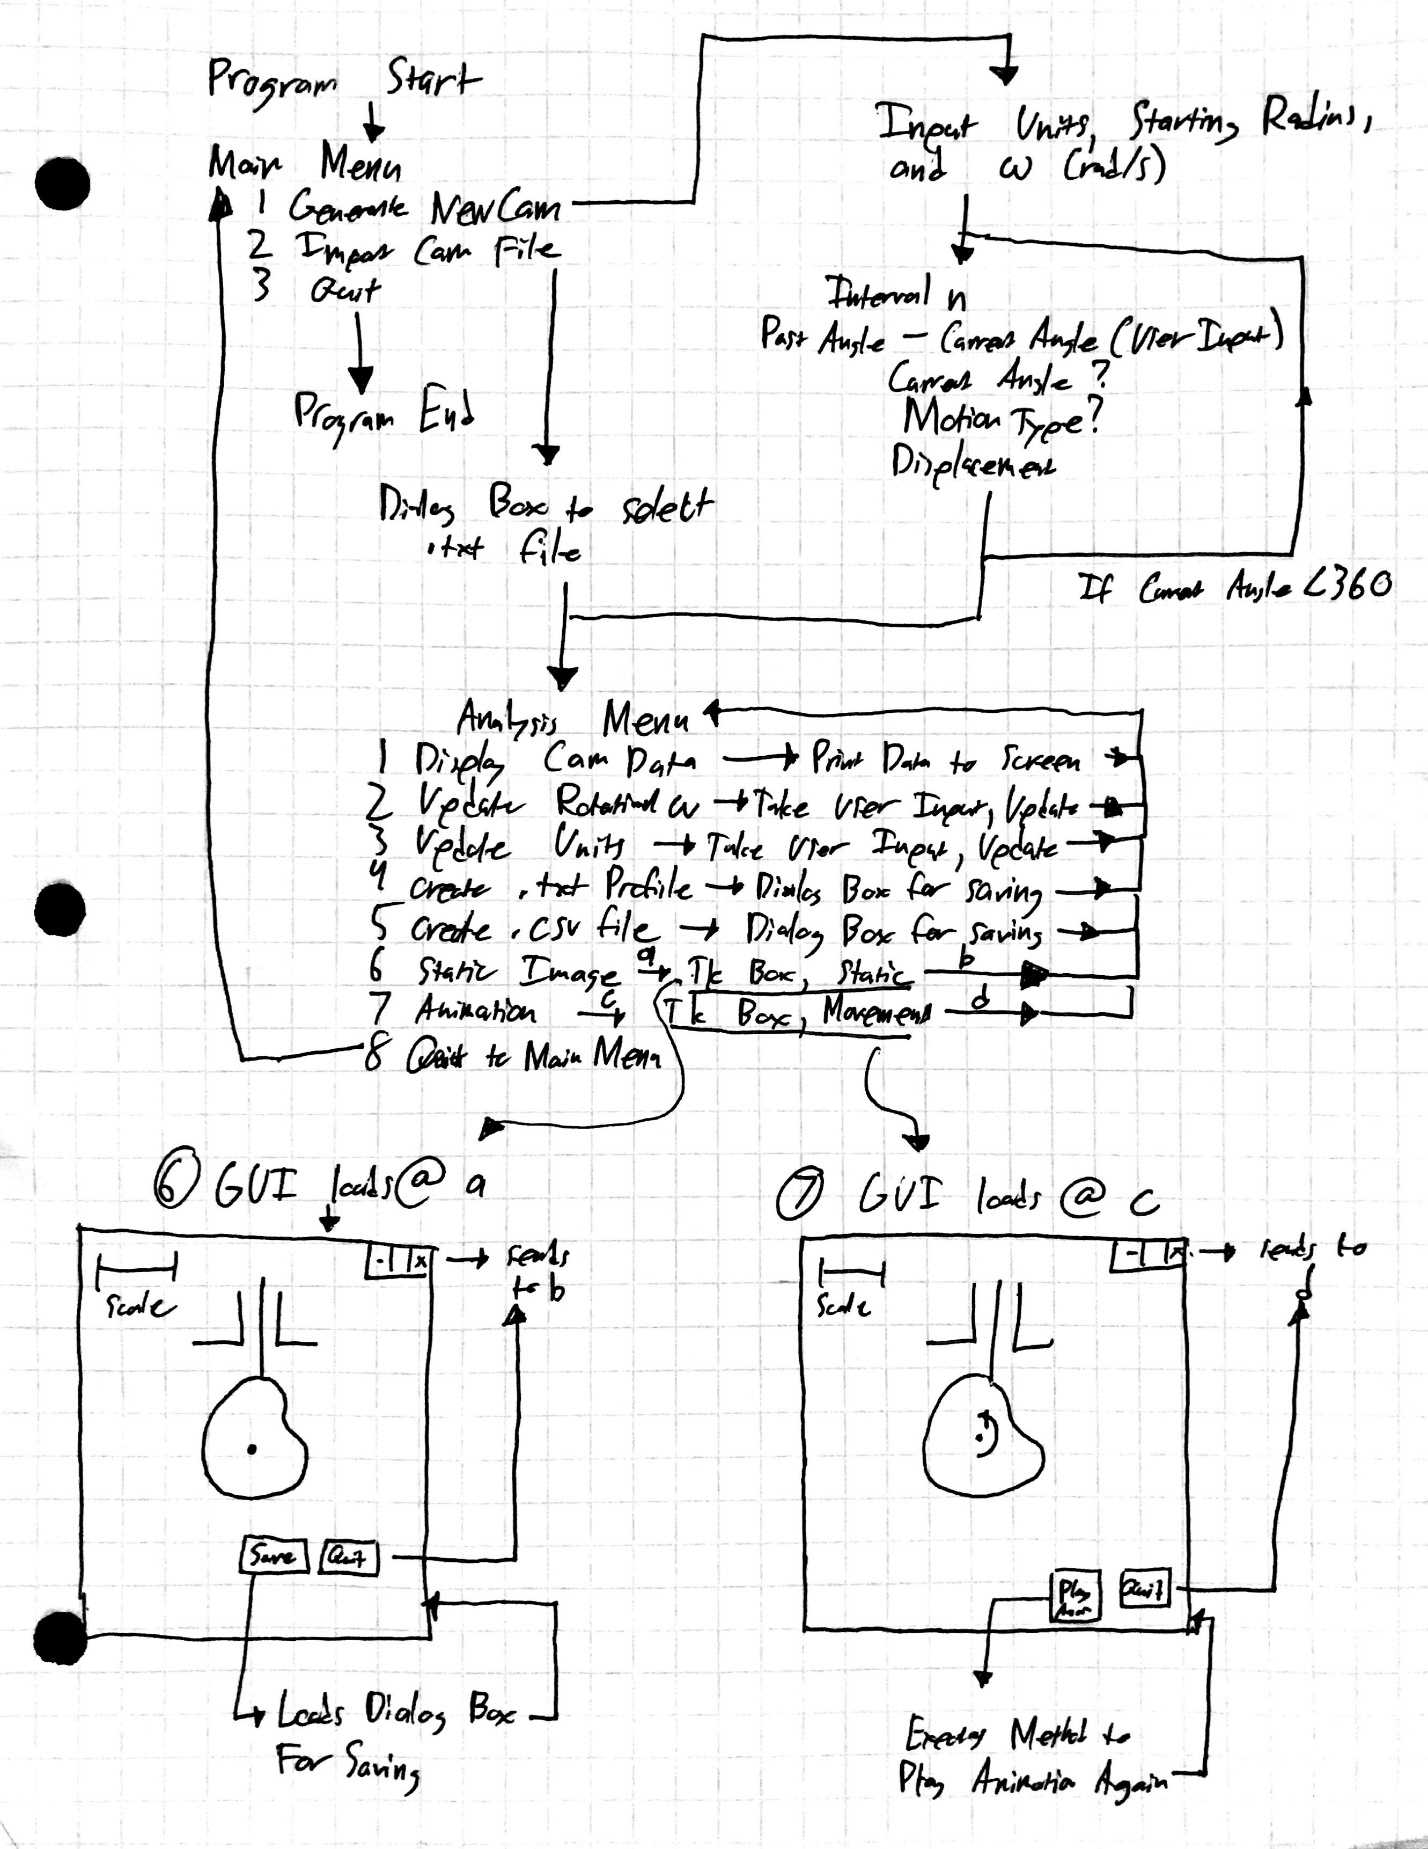 Program Start
Main Menu
1 Generate New Cam
2 Import Cam File
3 Quit
Program End
Input Units, Starting Radius,
and ω (rad/s)
Interval n
Past Angle - Current Angle (User Input)
Current Angle ?
Motion Type?
Displacement
If Current Angle <360
Dialog Box to select
.txt file
Analysis Menu
1 Display Cam Data → Print Data to Screen
2 Update Rotational ω → Take User Input, Update
3 Update Units → Take User Input, Update
4 Create .txt Profile → Dialog Box for saving
5 Create .csv file → Dialog Box for saving
6 Static Image a → Tk Box, Static b
7 Animation c → Tk Box, Movement d
8 Quit to Main Menu
6 GUI loads @ a
- x → sends
to b
Scale
Save Quit
Loads Dialog Box
For Saving
7 GUI loads @ c
- x → sends to
d
Scale
Play Quit
Anim
Executes Method to
Play Animation Again